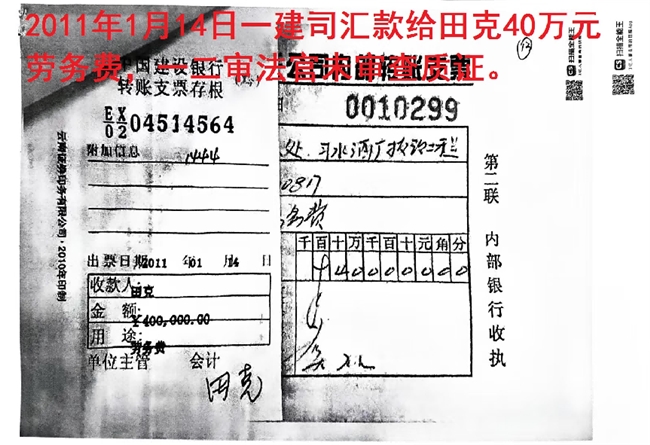 2011年1月14日一建司汇款给田克40万元
劳务费,一审法官未审查质证。
中国建设银行
转账支票存根
EX
02 04514564
附加信息 1444
出票日期 2011 年 01 月 14 日
收款人:
田克
金 额:
¥400,000.00
用 途:
劳务费
单位主管 会计
田克
云南证券印务有限公司·2010年印制
公司内部转账支票
0010299
处 习水酒厂技
务费
千百十万千百十元角分
4 0 0 0 0 0 0 0
第二联 内部银行收执
42
扫描全能王
扫描全能王